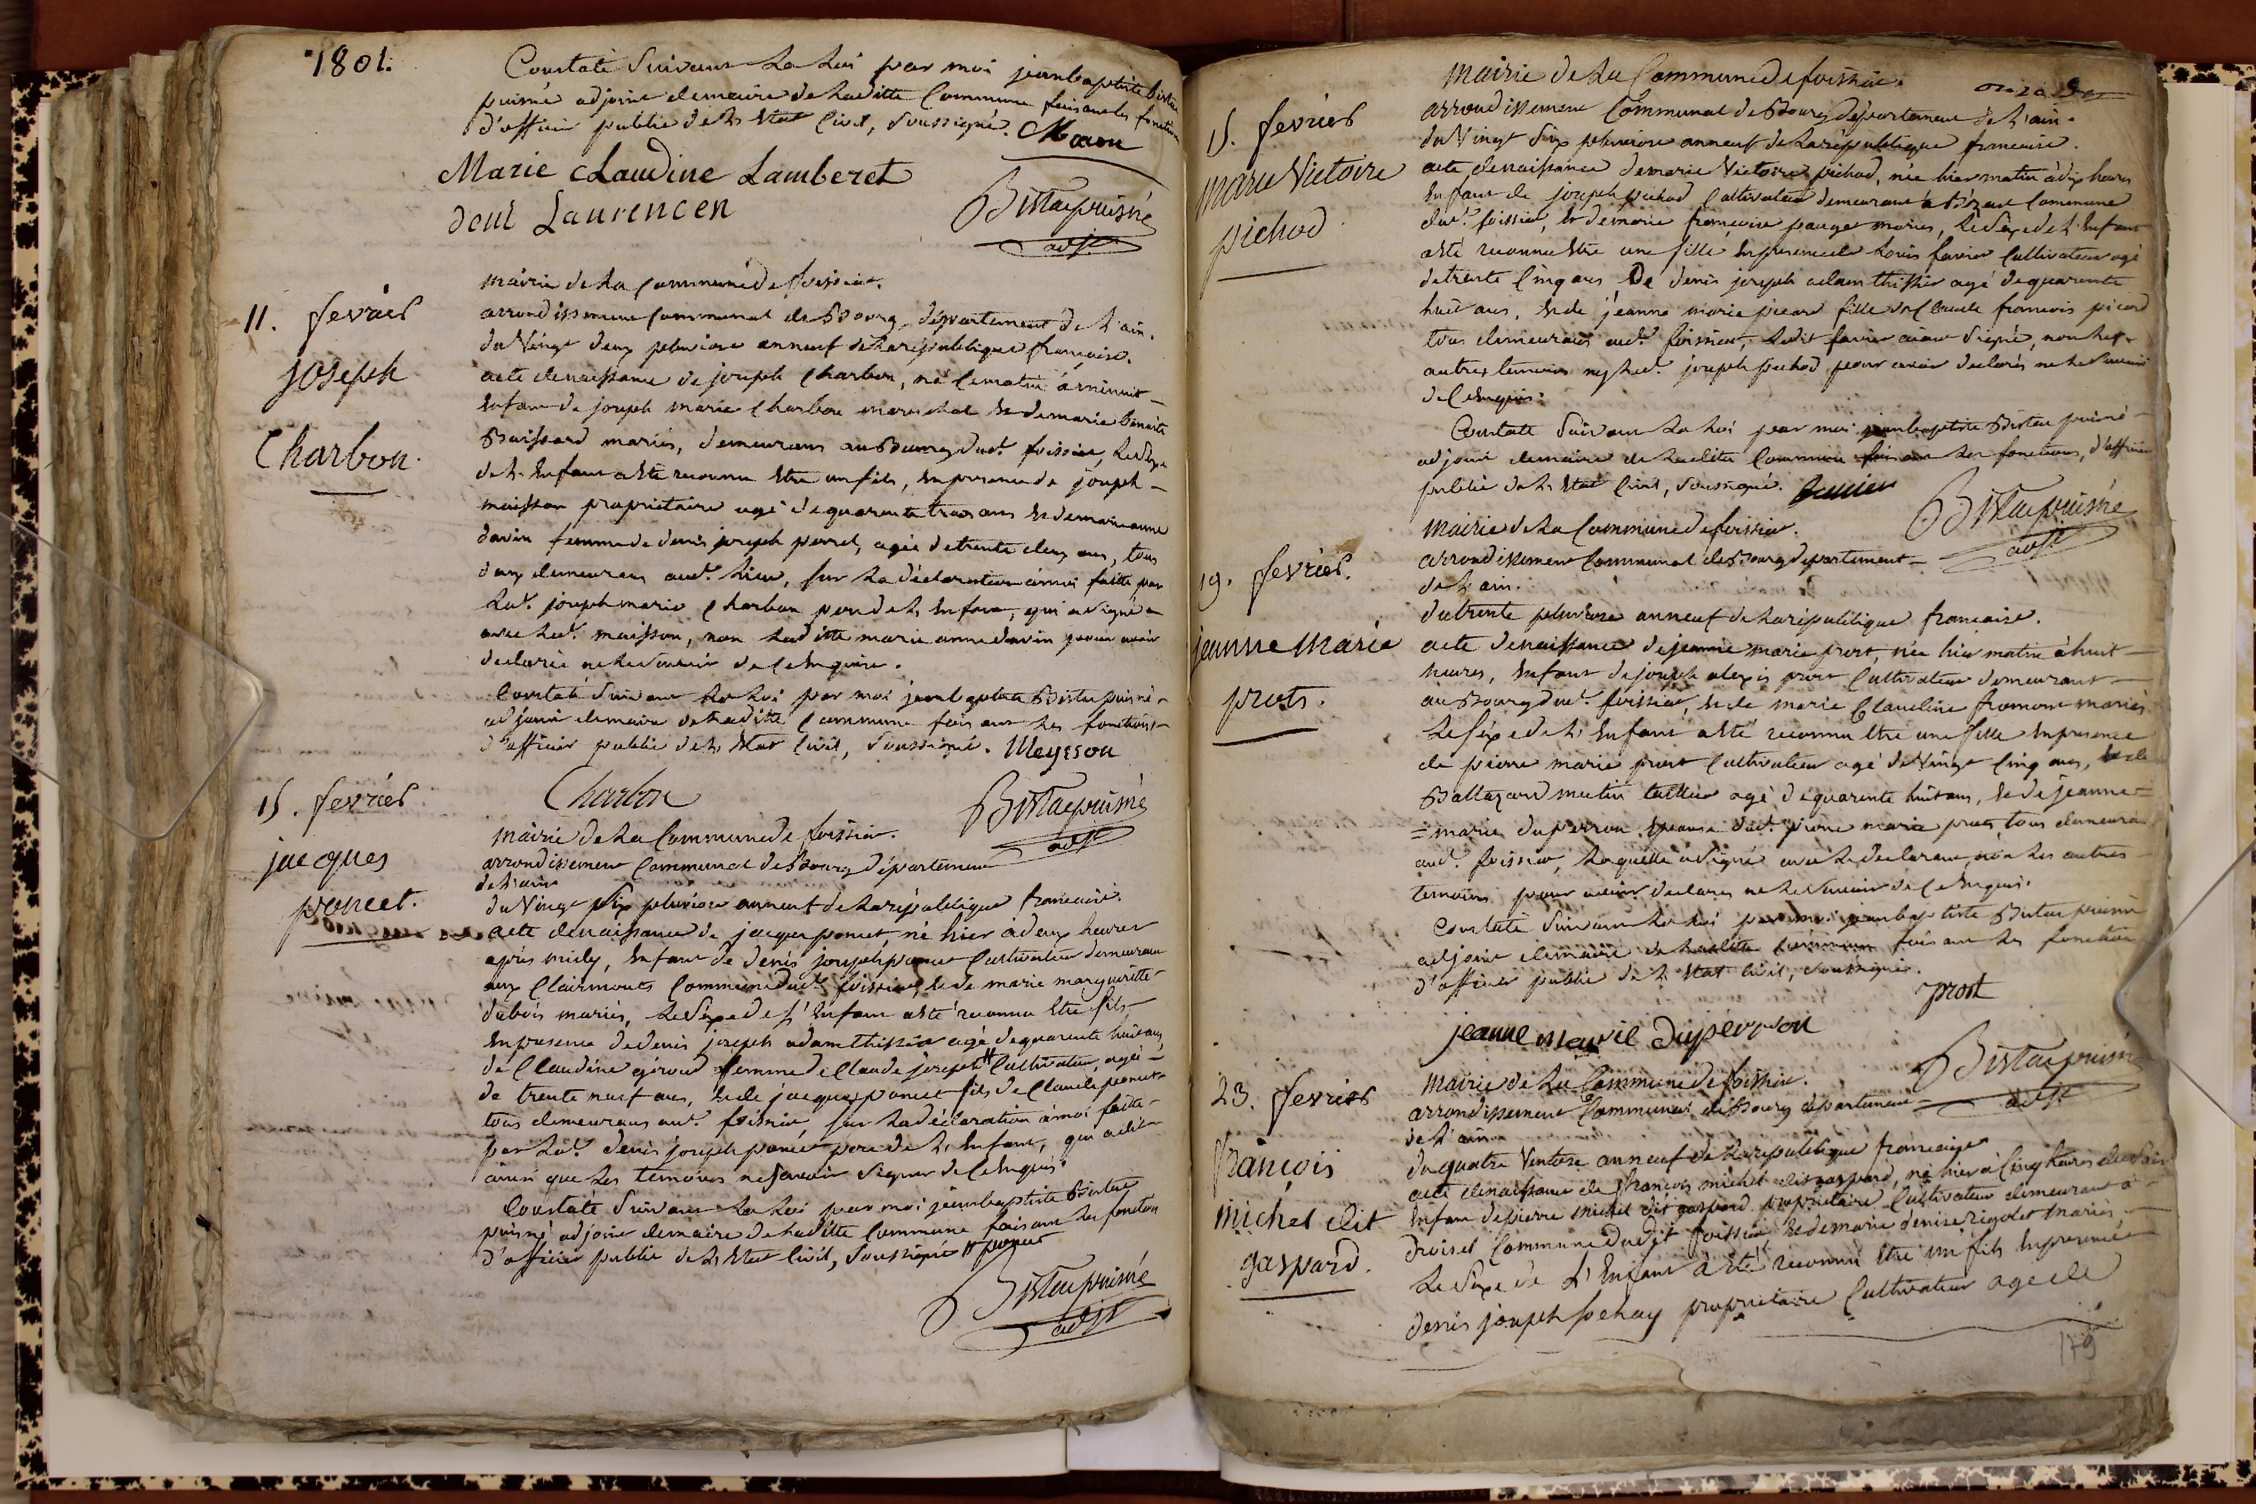 1801.
Constaté Suivant La Loi par moi jeanbaptiste Bistac
puisné adjoint demaire de Laditte Commune faisant les fonctions
d'officier public de L'Etat Civil, Soussigné.
Marie Claudine Lamberet
Laurencen
Bistac puisné
adjt
11. fevrier
joseph
Charbon.
Mairie de La Commune de foissiat.
arrondissement Communal de Bourg, département de L'ain.
du Vingt deux pluviose an neuf de La république françoise.
acte denaissance de joseph Charbon, né Cematin à minuit
Enfant de joseph marie Charbon marechal Et demarie benoite
Buissard mariés, demeurans au Bourg dud.t foissiat, Le Sexe
de L'Enfant a Eté reconnu Etre un fils, En presence de joseph
maisson proprietaire agé de quarente trois ans Et demarieanne
davin femme de denis joseph perret, agée de trente deux ans, tous
deux demeurans aud.t Lieu, sur La déclaration à moi faitte par
Led.t joseph marie Charbon pere de L'Enfant, qui a Signé
avec Led.t maisson, non Laditte marie anne davin pour avoir
declarée ne Le Savoir de Ce Enquise.
Constaté Suivant La Loi par moi jeanbaptiste Bistac puisné
adjoint demaire de Laditte Commune faisant Les fonctions
d'officier public de L'Etat Civil, Soussigné. Meysson
Charbon
Bistac puisné
adjt
15. fevrier
jacques
poncet.
Mairie de La Commune de foissiat.
arrondissement Communal de Bourg département
de L'ain
du Vingt Six pluviose an neuf de La république francaise.
acte denaissance de jacques poncet, né hier à deux heures
après midy, Enfant de denis joseph poncet Cultivateur demeurant
aux Clairmonts Commune dud.t foissiat, Et de marie margueritte
dubois mariés, Le Sexe de L'Enfant a Eté reconnu Etre fils
En presence de denis joseph adam thissier agé de quarente huit ans
de Claudine giroud femme de Claude joseph # Cultivateur, agée
de trente neuf ans, Et de jacques poncet fils de Claude poncet
tous demeurans aud.t foissiat, sur La déclaration à moi faitte
par Led.t denis joseph poncet pere de L'Enfant, qui a dit
ainsi que Les temoins ne Savoir Signer de Ce Enquis.
Constaté Suivant La Loi par moi jeanbaptiste Bistac
puisné adjoint demaire de Laditte Commune faisant Les fonctions
d'officier public de L'Etat Civil, Soussigné # poncet
Bistac puisné
adjt
15. fevrier
Marie Victoire
pichod
Mairie de La Commune de foissiat.
arrondissement Communal de Bourg département de L'ain.
du Vingt Six pluviose an neuf de La république francaise.
acte denaissance de marie Victoire pichod, née hier matin à dix heures
Enfant de joseph pichod Cultivateur demeurant à Commune
dud.t foissiat, Et de marie françoise pauget mariés, Le Sexe de L'Enfant
a Eté reconnu Etre une fille En presence de Louis favier Cultivateur agé
de trente Cinq ans De denis joseph adam thissier agé de quarente
huit ans, Et de jeanne marie picard fille de Claude francois picard
tous demeurans aud.t foissiat, Ledit favier aiant Signé, non Les
autres temoins ny Led.t joseph pichod pour avoir declarés ne Le Savoir
de Ce Enquis.
Constaté Suivant La Loi par moi jeanbaptiste Bistac puisné
adjoint demaire de Laditte Commune faisant Les fonctions, d'officier
public de L'Etat Civil, Soussigné.
Bistac puisné
adjt
19. fevrier.
jeanne Marie
prost.
Mairie de La Commune de foissiat.
arrondissement Communal de Bourg département
de L'ain.
du trente pluviose an neuf de La république francaise.
acte denaissance de jeanne marie prost, née hier matin à huit
heures, Enfant de joseph alexis prost Cultivateur demeurant
au Bourg dud.t foissiat, Et de marie Claudine fromont mariés
Le Sexe de L'Enfant a Eté reconnu Etre une fille En presence
de pierre marie prost Cultivateur agé de Vingt Cinq ans, Et de
Baltazard mutin agé de quarente huit ans, Et de jeanne
marie duperron Epouse dud.t pierre marie prost, tous demeurans
aud.t foissiat, Laquelle a Signé avec Le declarant, non Les autres
temoins pour avoir declarés ne Le Savoir de Ce Enquis.
Constaté Suivant La Loi par moi jeanbaptiste Bistac puisné
adjoint demaire de Laditte Commune faisant Les fonctions
d'officier public de L'Etat Civil, Soussigné.
prost
jeanne marie duperron
Bistac puisné
adjt
23. fevrier
françois
Michel dit
gaspard.
Mairie de La Commune de foissiat.
arrondissement Communal de Bourg département
de L'ain
du quatre Ventose an neuf de La république francaise
acte denaissance de françois michel dit gaspard, né hier à Cinq heures du Soir
Enfant de pierre Michel dit gaspard proprietaire Cultivateur demeurant à
Commune Dudit foissiat Et de marie denise rigolet Mariés
Le Sexe de L'Enfant a Eté reconnu Etre un fils En presence
denis joseph pehay proprietaire Cultivateur age de
179